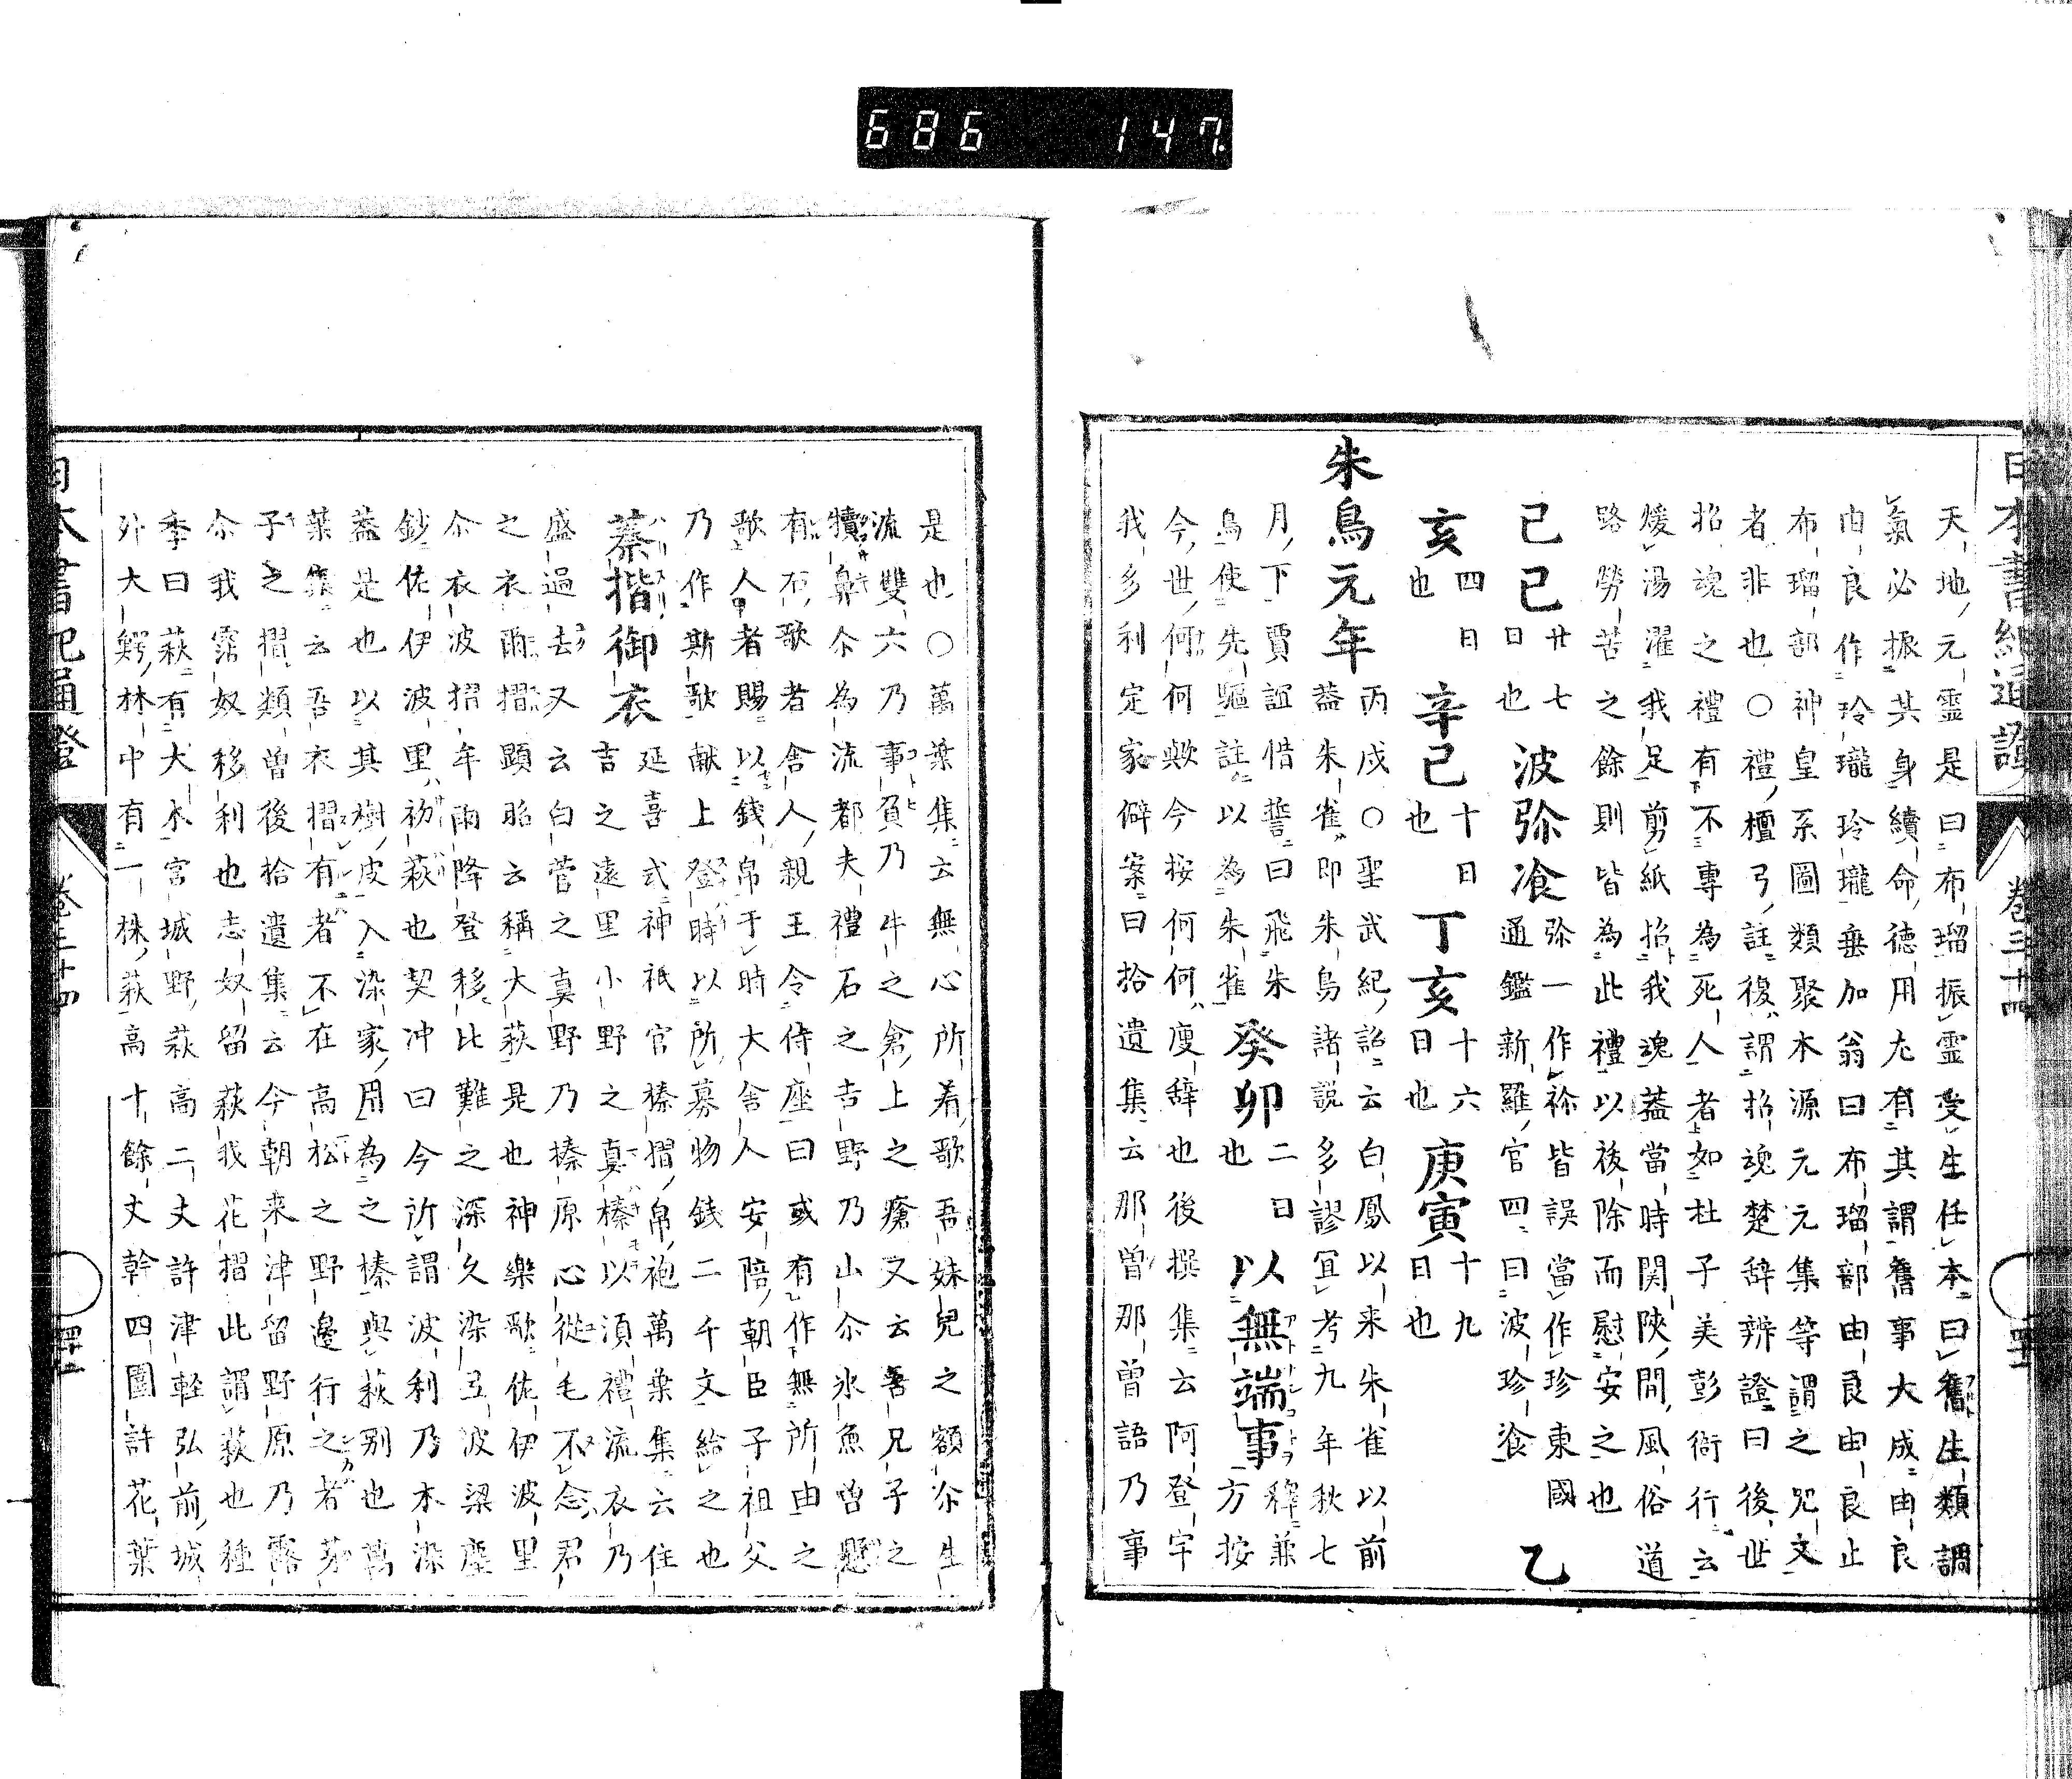 686 147
日本書紀通證 卷三十四
天地元霊是曰布瑠振霊受生任本曰舊生類調
氣必振其身續命德用尤有其謂舊事大成由良
由良作玲瓏玲瓏垂加翁曰布瑠部由良由良止
布瑠部神皇系圖類聚本源元元集等謂之咒文
者非也○禮檀弓註復謂招魂楚辞辨證曰後世
招魂之禮有不專為死人者如杜子美彭衙行云
煖湯濯我足剪紙招我魂蓋當時関陝間風俗道
路勞苦之餘則皆為此禮以後除而慰安之也
己巳 廿七日也 波弥飡 弥一作祢皆誤當作珍東國通鑑新羅官四曰波珍飡 乙
亥 四日也 辛巳 十日也 丁亥 十六日也 庚寅 十九日也
朱鳥元年 丙戌○聖武紀詔云白鳳以来朱雀以前
蓋朱雀即朱鳥諸説多謬宜考九年秋七
月下賈誼惜誓曰飛朱
鳥使先驅註以為朱雀 癸卯 二日也 以無端事 釋兼方按
今世何何歟今按何何廋辞也後撰集云阿登宇
我多利定家僻案曰拾遺集云那曽那曽語乃事
是也○萬葉集云無心所着歌吾妹兒之額尓生
流雙六乃事負乃牛之倉上之瘡又云吾兄子之
犢鼻尓為流都夫禮石之吉野乃山尓氷魚曽懸
有右歌者舎人親王令侍座曰或有作無所由之
歌人者賜以錢帛于時大舎人安陪朝臣子祖父
乃作斯歌献上登時以所募物銭二千文給之也
蓁揩御衣 延喜式神祇官榛摺帛袍萬葉集云住
吉之遠里小野之真榛以須禮流衣乃
盛過去又云白菅之真野乃榛原心従毛不念君
之衣尓摺顕昭云稱大萩是也神樂歌佐伊波里
尓衣波摺牟雨降登移比難之深久染丑波梁塵
鈔佐伊波里初萩也契冲曰今所謂波利乃木染
蓋是也以其樹皮入染家用為之榛與萩别也萬
葉集云吾衣摺有者不在高松之野邊行之者芽
子之摺類曽後拾遺集云今朝来津留野原乃露
尓我霑奴移利也志奴留萩我花摺此謂萩也種
季曰萩有大木宮城野萩高二丈許津軽弘前城
外大鰐林中有一株萩高十餘丈幹四圍許花葉
日本書紀通證 卷三十四